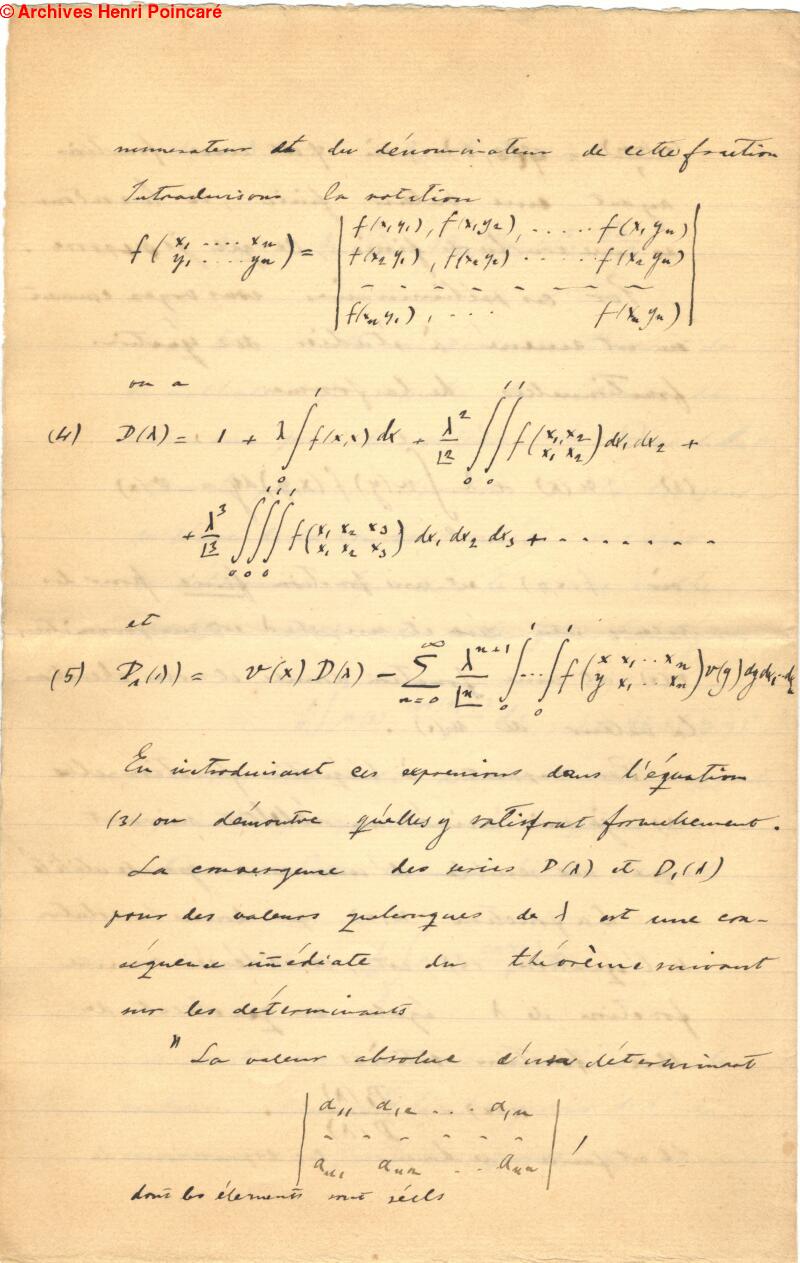 © Archives Henri Poincaré
numerateur et du dénominateur de cette fraction
Introduisons la notation
f(x₁ .... xₙ / y₁ .... yₙ) = | f(x₁y₁), f(x₁y₂), ..... f(x₁yₙ)
f(x₂y₁), f(x₂y₂) ..... f(x₂yₙ)
– – – – – – – –
f(xₙy₁), .... f(xₙyₙ) |
on a
(4) D(λ) = 1 + λ ∫₀¹ f(x,x) dx + λ²/⌊2 ∫₀¹∫₀¹ f(x₁,x₂ / x₁ x₂) dx₁ dx₂ +
+ λ³/⌊3 ∫₀¹∫₀¹∫₀¹ f(x₁ x₂ x₃ / x₁ x₂ x₃) dx₁ dx₂ dx₃ + . . . . . . . .
et
(5) D₁(λ) = v(x) D(λ) – ∑ₙ₌₀^∞ λⁿ⁺¹/⌊n ∫₀¹...∫₀¹ f(x x₁ .. xₙ / y x₁ .. xₙ) v(y) dy dx₁..dxₙ
En introduisant ces expressions dans l'équation
(3) on démontre qu'elles y satisfont formellement.
La convergense des series D(λ) et D₁(λ)
pour des valeurs quelconques de λ est une con-
séquence immédiate du théorème suivant
sur les déterminants
" La valeur absolue d'un déterminant
| a₁₁ a₁₂ . . . a₁ₙ
– – – – – –
aₙ₁ aₙ₂ . . aₙₙ | ,
dont les élements sont réels